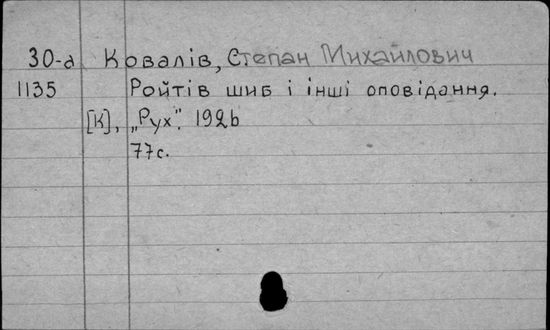 30-а Ковалів, Степан Михайлович
1135 Ройтів шиб і інші оповідання.
[К], „Рух". 1926
77с.